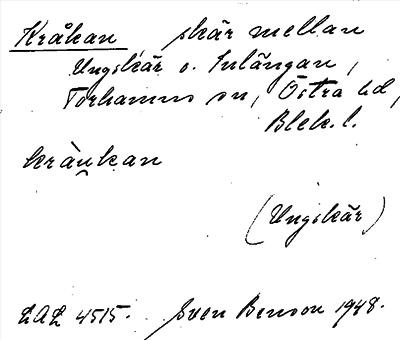 Kråkan skär mellan
Ungskär o. Inlängan,
Torhamns sn, Östra hd,
Blek. l.
kràu̯kan
(Ungskär)
LAL 4515. Sven Benson 1948.